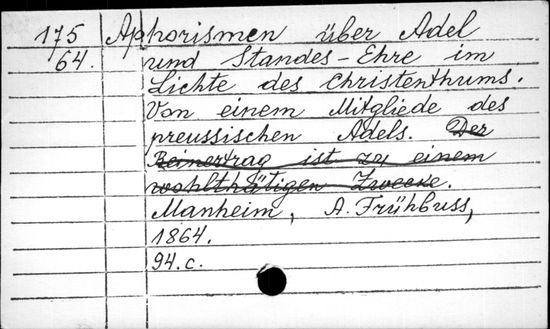 175 Aphorismen über Adel
64. und Standes-Ehre im
Lichte des Christenthums.
Von einem Mitgliede des
preussischen Adels. Der
Reinertrag ist zu einem
wohlthätigen Zwecke.
Manheim, A. Frühbuss,
1864.
94.c.